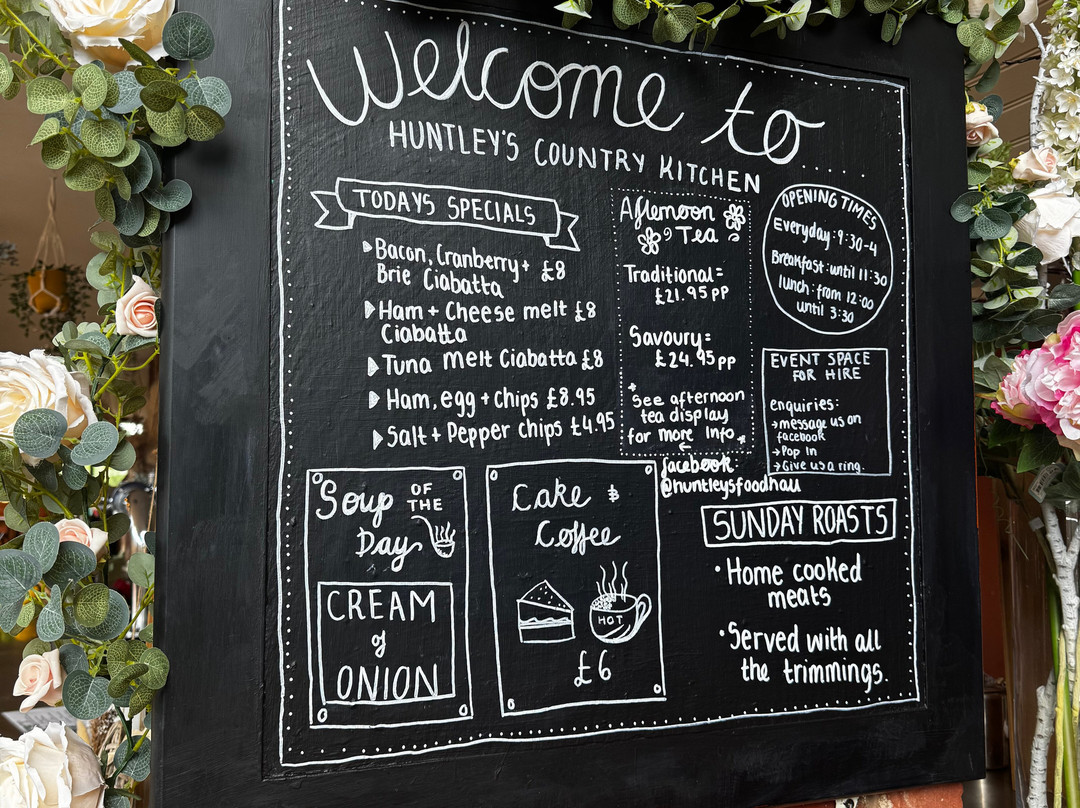 Welcome to
HUNTLEY'S COUNTRY KITCHEN
TODAYS SPECIALS
Bacon, Cranberry +
Brie Ciabatta £8
Ham + Cheese melt £8
Ciabatta
Tuna melt Ciabatta £8
Ham, egg + chips £8.95
Salt + Pepper chips £4.95
Afternoon
Tea
Traditional =
£21.95 pp
Savoury =
£24.95 pp
* See afternoon
tea display
for more info *
facebook
@huntleysfoodhall
OPENING TIMES
Everyday : 9:30-4
Breakfast : until 11:30
lunch : from 12:00
until 3:30
EVENT SPACE
FOR HIRE
enquiries:
→ message us on
facebook
→ Pop in
→ Give us a ring.
Soup OF
THE
Day
CREAM
of
ONION
Cake &
Coffee
HOT
£6
SUNDAY ROASTS
• Home cooked
meats
• Served with all
the trimmings.